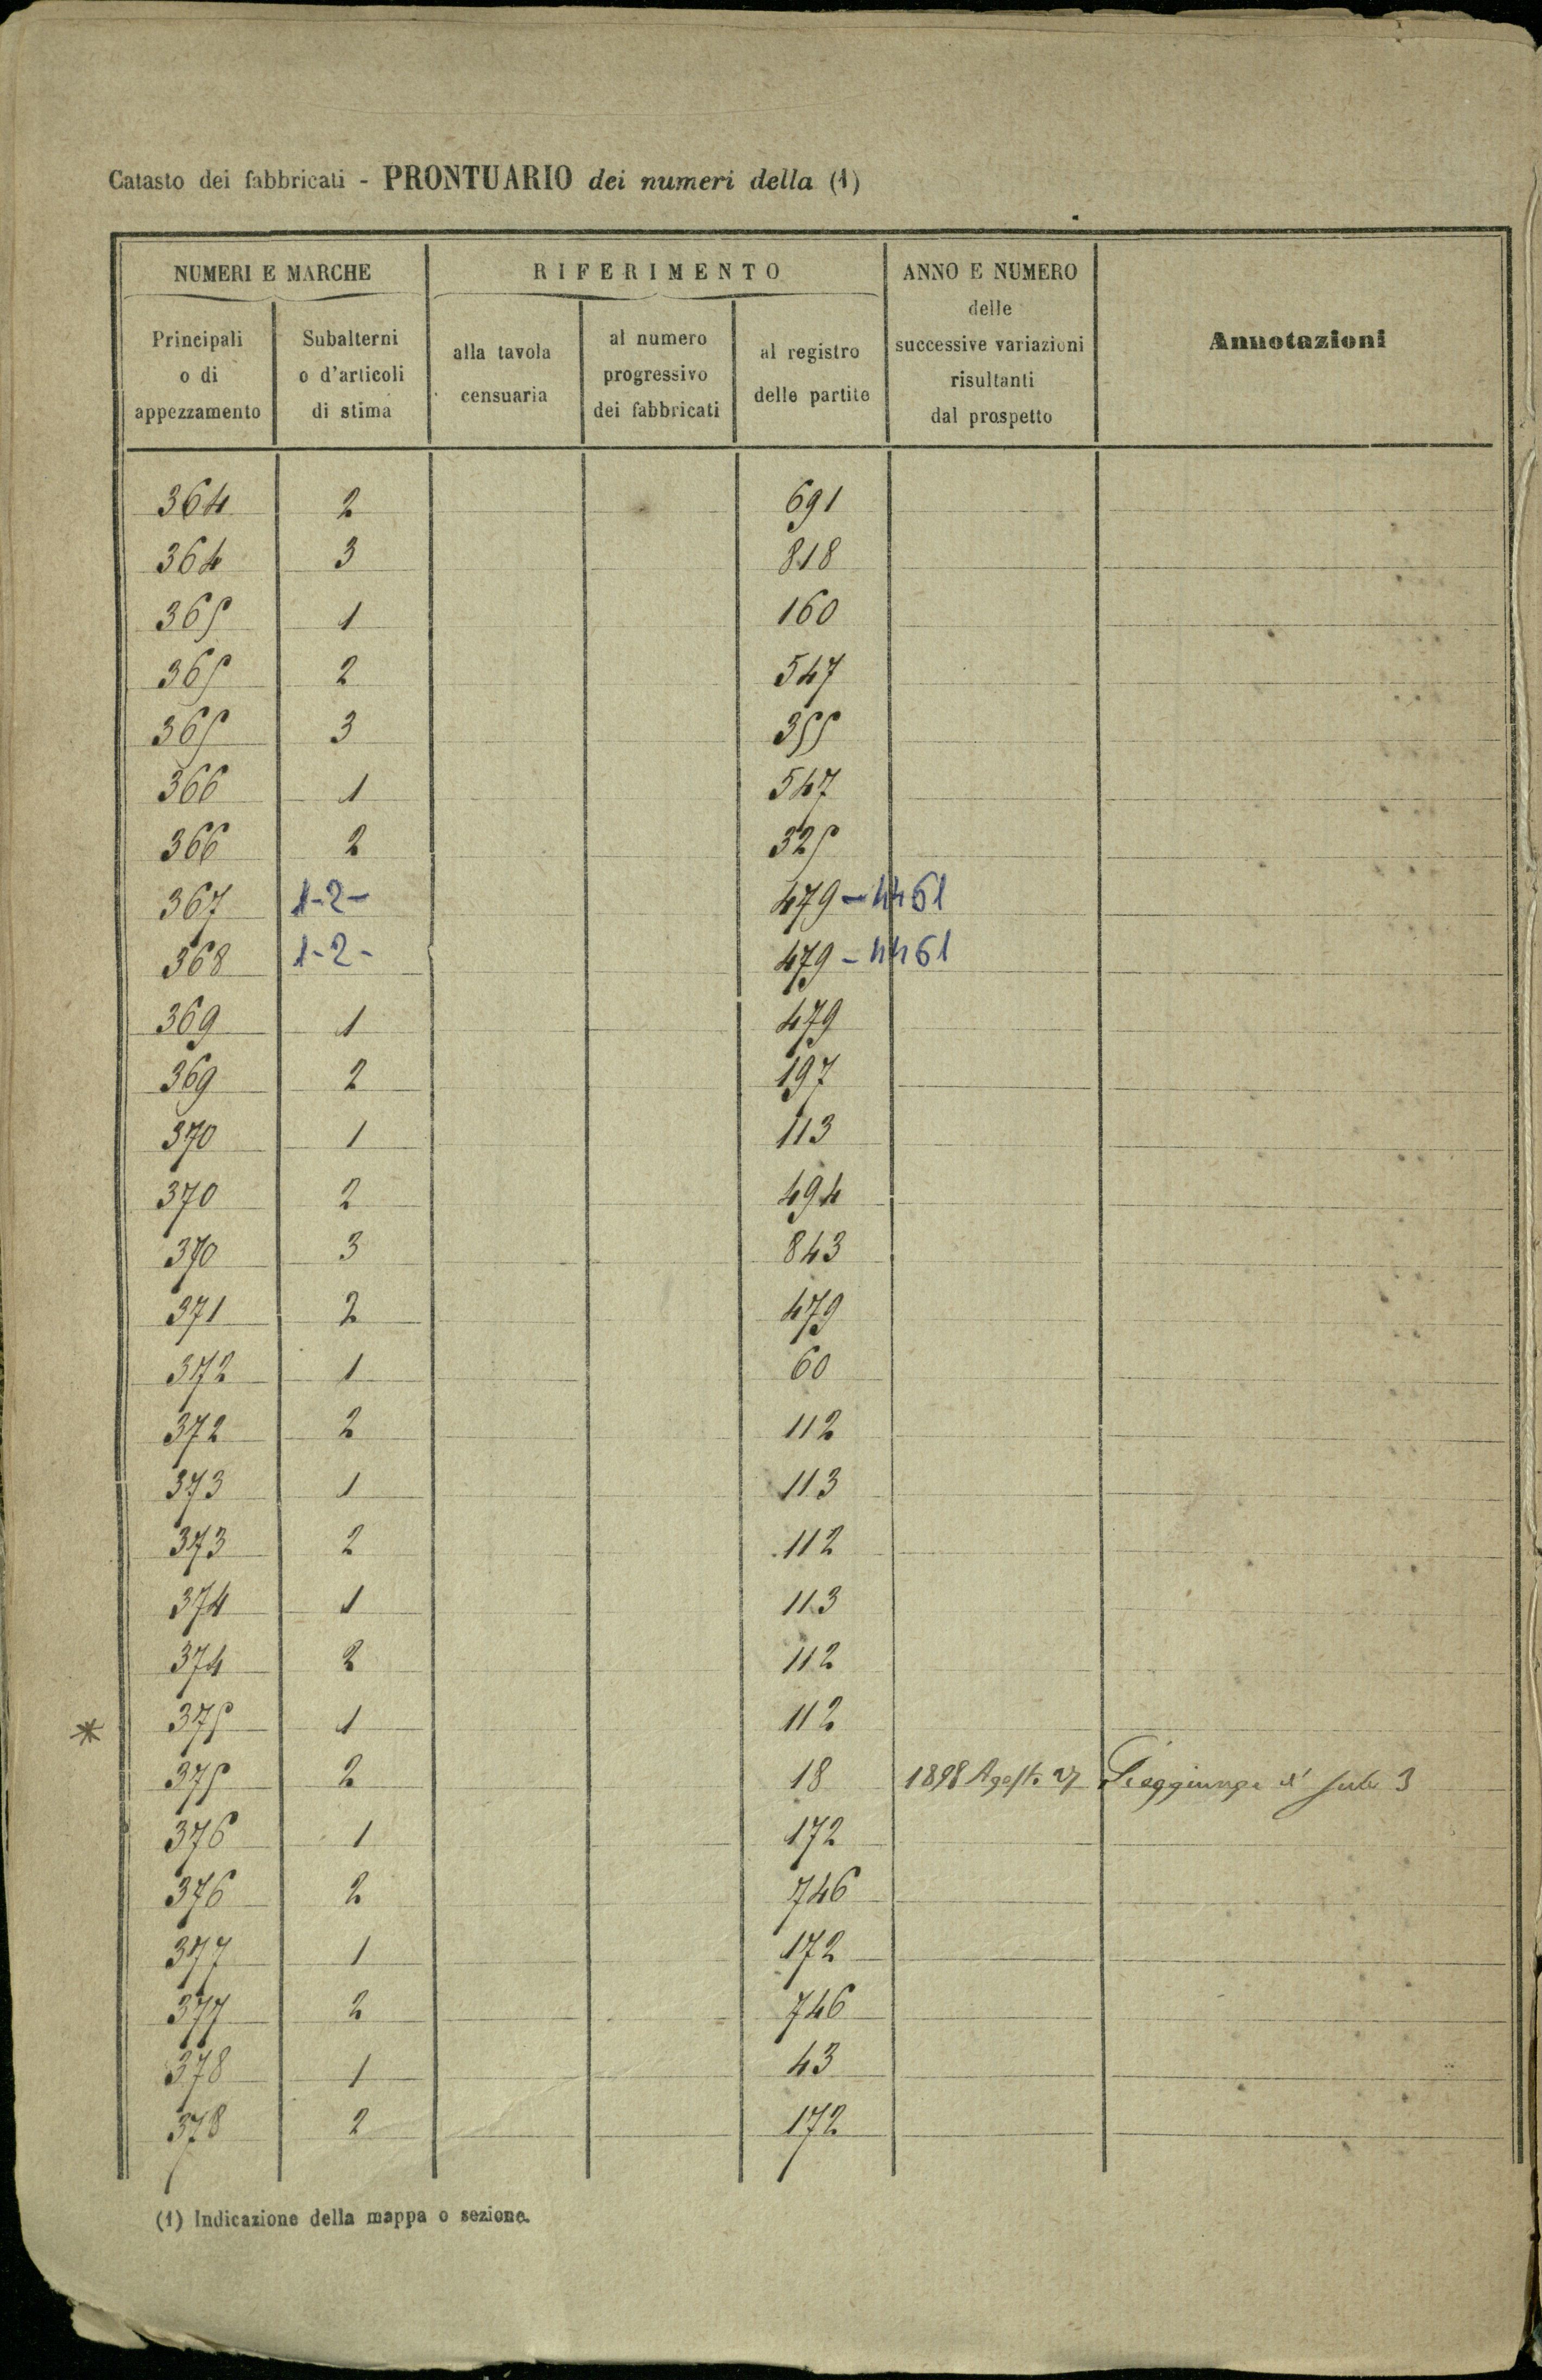 Catasto dei fabbricati - PRONTUARIO dei numeri della (1)
NUMERI E MARCHE RIFERIMENTO ANNO E NUMERO delle successive variazioni risultanti dal prospetto Annotazioni
Principali o di appezzamento Subalterni o d'articoli di stima alla tavola censuaria al numero progressivo dei fabbricati al registro delle partite
364 2 691
364 3 818
365 1 160
365 2 547
365 3 355
366 1 547
366 2 325
367 1-2- 479 - 4461
368 1-2- 479 - 4461
369 1 479
369 2 197
370 1 113
370 2 494
370 3 843
371 2 479
372 1 60
372 2 112
373 1 113
373 2 112
374 1 113
374 2 112
* 375 1 112
375 2 18 1898 Agosto 27 sub 3
376 1 172
376 2 746
377 1 172
377 2 746
378 1 43
378 2 172
(1) Indicazione della mappa o sezione.